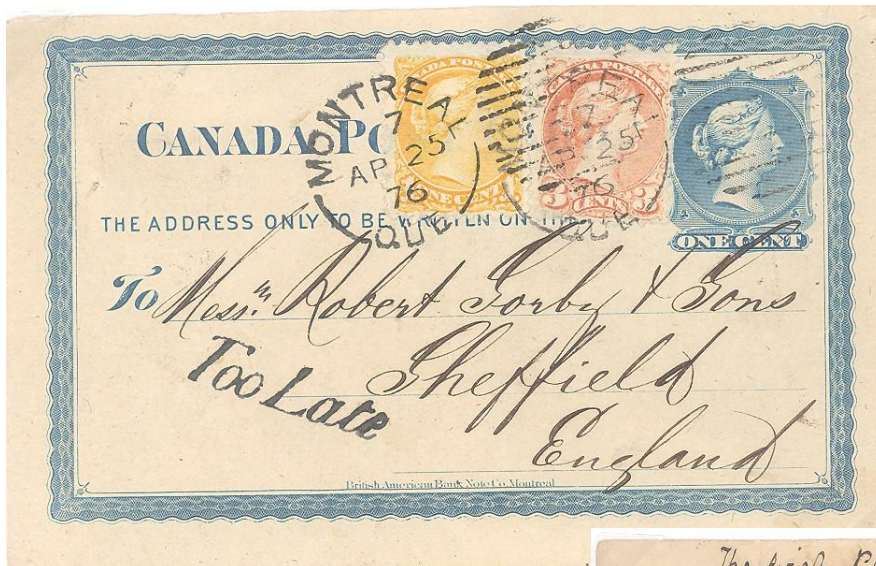 CANADA PO
CANADA POSTAGE
ONE CENT
CANADA POSTAGE
3 CENTS 3
ONE CENT
MONTREA
7 A
AP 25
76
QUE
25
76
THE ADDRESS ONLY TO BE WRITTEN ON TH
To Messrs. Robert Sorby & Sons
Sheffield
England
Too Late
British American Bank Note Co. Montreal
The